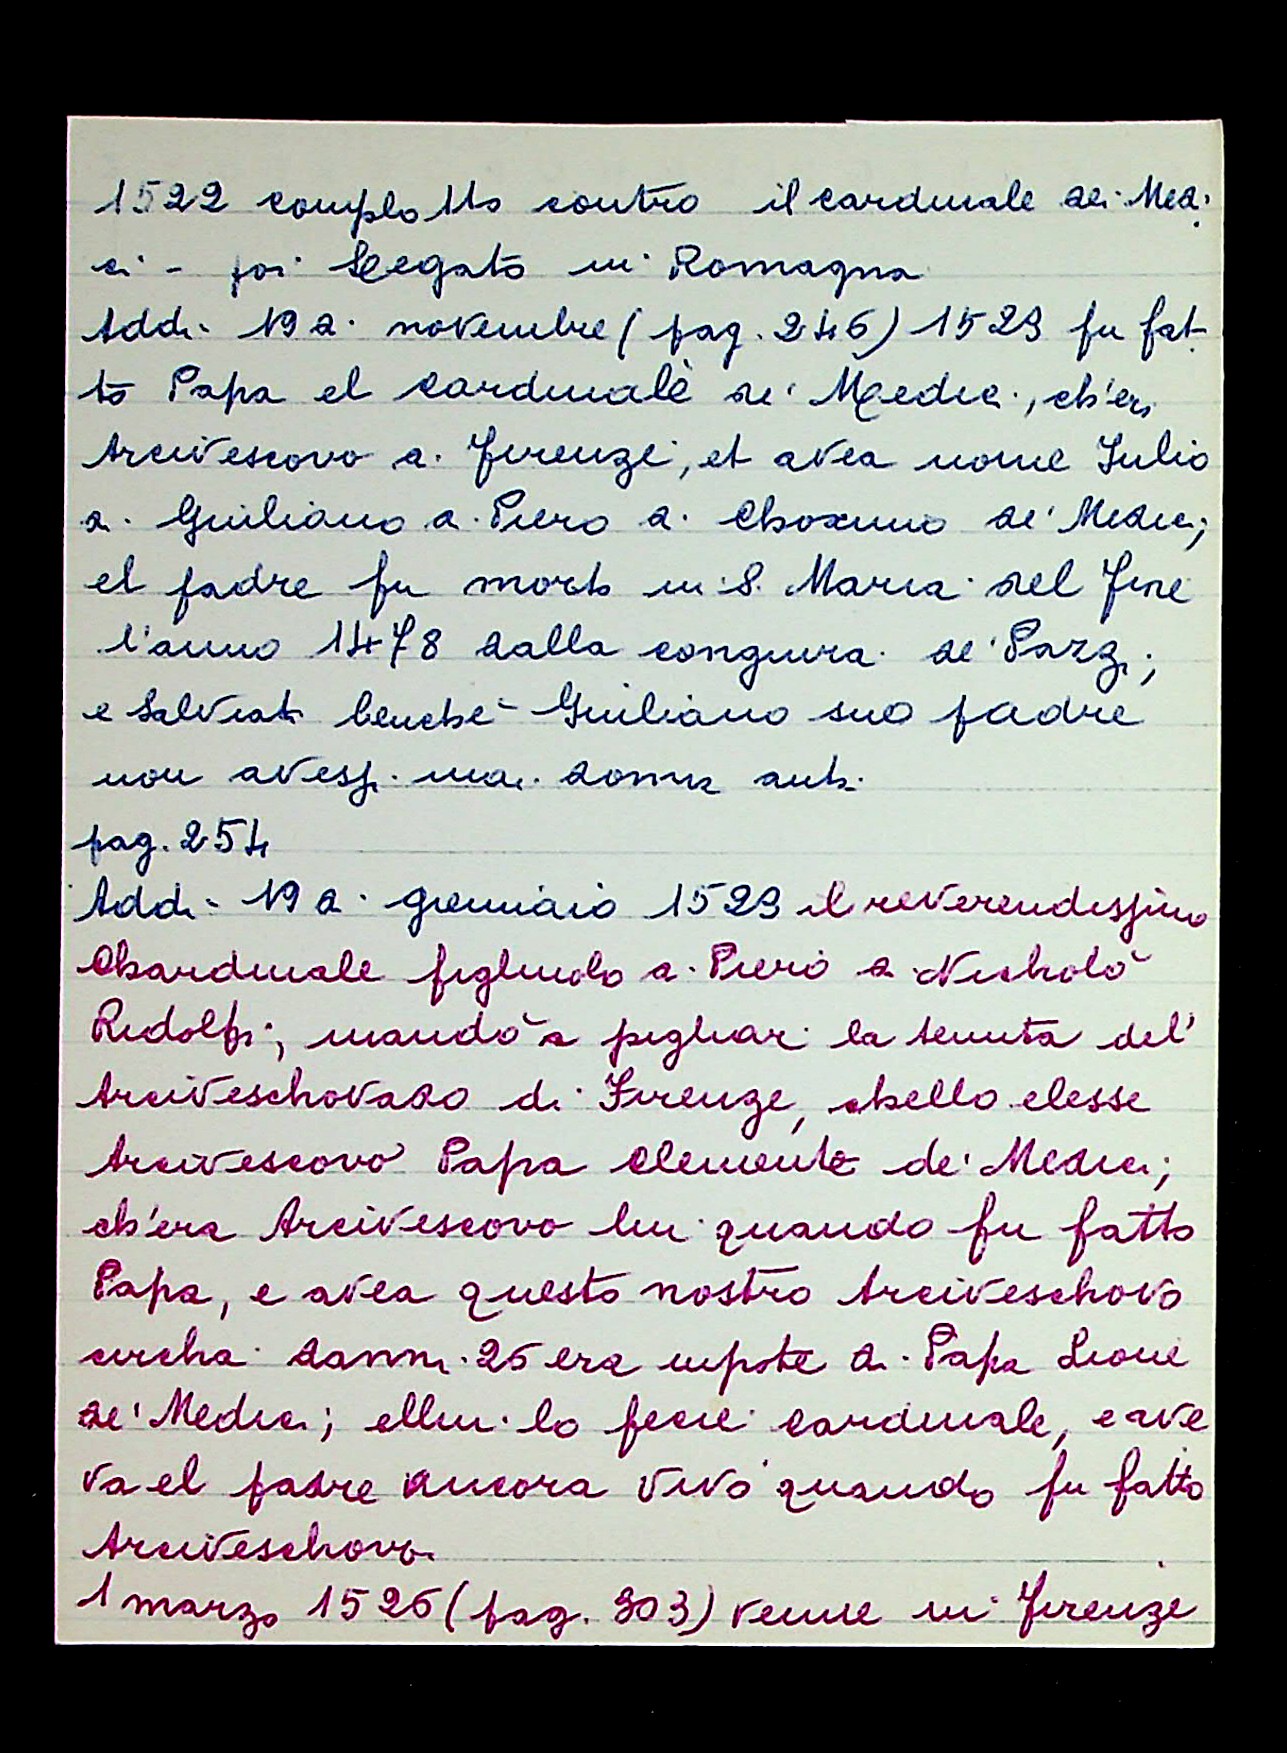 1522 complotto contro il cardinale dei Med.
ci - poi Legato in Romagna
Addi 19 d. novembre (pag. 246) 1523 fu fat-
to Papa el Cardinale de' Medici, ch'era
Arcivescovo di Firenze, et avea nome Julio
di Giuliano di Piero di Choximo de' Medici;
el padre fu morto in S. Maria del Fiore
l'anno 1478 dalla congiura de' Pazzi;
e Salviati benchè Giuliano suo padre
non avessi mai donna
pag. 254
Addi 19 di giennaio 1523 il reverendissimo
Chardinale figliuolo di Piero di Nicholò
Ridolfi; mandò a pigliar la tenuta del'
Arciveschovado di Firenze, chello elesse
Arcivescovo Papa Clemente de' Medici;
ch'era Arcivescovo lui quando fu fatto
Papa, e avea questo nostro Arciveschovo
circha danni 25 era nipote di Papa Lione
de' Medici; ellui lo fecie Cardinale, e ave
va el padre ancora vivo quando fu fatto
Arciveschovo.
1 marzo 1526 (pag. 303) venne in Firenze